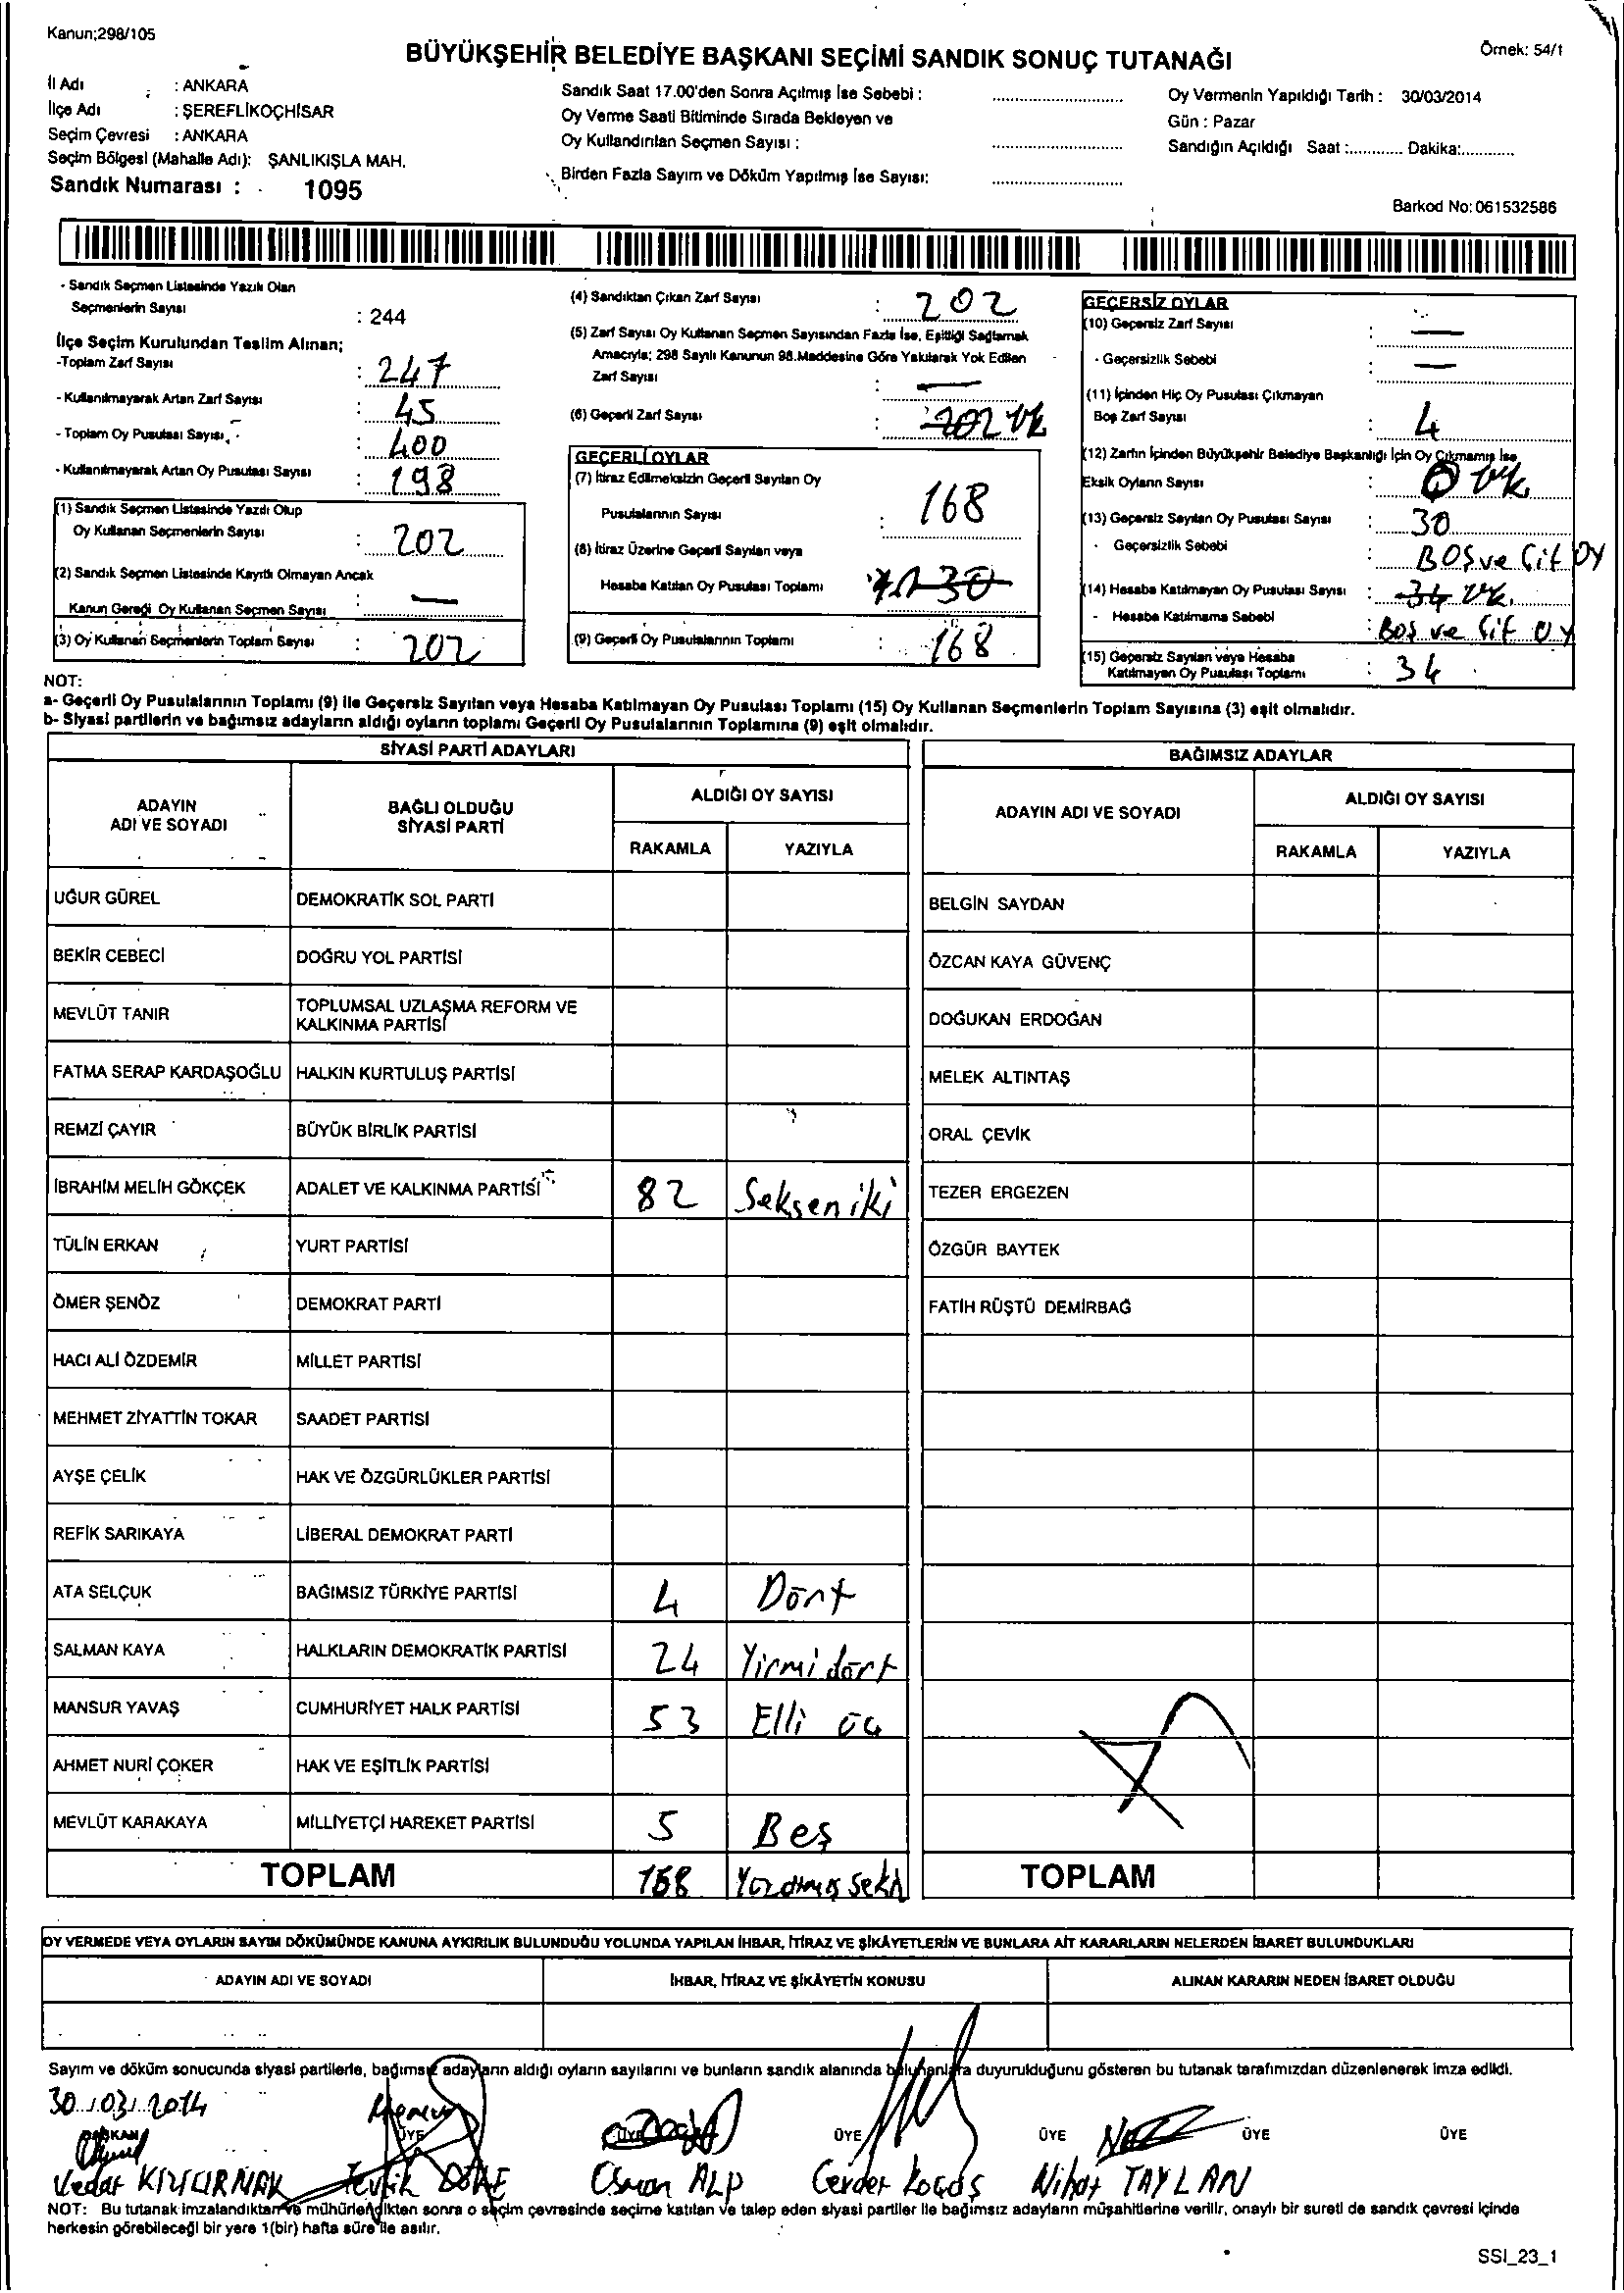 Kanun;298/105
Örnek: 54/1
BÜYÜKŞEHİR BELEDİYE BAŞKANI SEÇİMİ SANDIK SONUÇ TUTANAĞI
İl Adı : ANKARA
İlçe Adı : ŞEREFLİKOÇHİSAR
Seçim Çevresi : ANKARA
Seçim Bölgesi (Mahalle Adı): ŞANLIKIŞLA MAH.
Sandık Numarası : 1095
Sandık Saat 17.00'den Sonra Açılmış İse Sebebi :
Oy Verme Saati Bitiminde Sırada Bekleyen ve
Oy Kullandırılan Seçmen Sayısı :
Birden Fazla Sayım ve Döküm Yapılmış İse Sayısı:
Oy Vermenin Yapıldığı Tarih : 30/03/2014
Gün : Pazar
Sandığın Açıldığı Saat :............ Dakika:............
Barkod No: 061532586
- Sandık Seçmen Listesinde Yazılı Olan
Seçmenlerin Sayısı : 244
İlçe Seçim Kurulundan Teslim Alınan;
-Toplam Zarf Sayısı : 247
- Kullanılmayarak Artan Zarf Sayısı : 45
- Toplam Oy Pusulası Sayısı : 400
- Kullanılmayarak Artan Oy Pusulası Sayısı : 198
(1) Sandık Seçmen Listesinde Yazılı Olup
Oy Kullanan Seçmenlerin Sayısı : 202
(2) Sandık Seçmen Listesinde Kayıtlı Olmayan Ancak
Kanun Gereği Oy Kullanan Seçmen Sayısı : —
(3) Oy Kullanan Seçmenlerin Toplam Sayısı : 202
(4) Sandıktan Çıkan Zarf Sayısı : 202
(5) Zarf Sayısı Oy Kullanan Seçmen Sayısından Fazla İse, Eşitliği Sağlamak
Amacıyla; 298 Sayılı Kanunun 98.Maddesine Göre Yakılarak Yok Edilen
Zarf Sayısı : —
(6) Geçerli Zarf Sayısı : 202
GEÇERLİ OYLAR
(7) İtiraz Edilmeksizin Geçerli Sayılan Oy
Pusulalarının Sayısı : 168
(8) İtiraz Üzerine Geçerli Sayılan veya
Hesaba Katılan Oy Pusulası Toplamı 30
(9) Geçerli Oy Pusulalarının Toplamı : 168
GEÇERSİZ OYLAR
(10) Geçersiz Zarf Sayısı : —
- Geçersizlik Sebebi : —
(11) İçinden Hiç Oy Pusulası Çıkmayan
Boş Zarf Sayısı : 4
(12) Zarfın İçinden Büyükşehir Belediye Başkanlığı İçin Oy Çıkmamış İse
Eksik Oyların Sayısı : 0
(13) Geçersiz Sayılan Oy Pusulası Sayısı : 30
- Geçersizlik Sebebi : BOŞ ve Çift OY
(14) Hesaba Katılmayan Oy Pusulası Sayısı : 34
- Hesaba Katılmama Sebebi : Boş ve Çift OY
(15) Geçersiz Sayılan veya Hesaba
Katılmayan Oy Pusulası Toplamı : 34
NOT:
a- Geçerli Oy Pusulalarının Toplamı (9) ile Geçersiz Sayılan veya Hesaba Katılmayan Oy Pusulası Toplamı (15) Oy Kullanan Seçmenlerin Toplam Sayısına (3) eşit olmalıdır.
b- Siyasi partilerin ve bağımsız adayların aldığı oyların toplamı Geçerli Oy Pusulalarının Toplamına (9) eşit olmalıdır.
SİYASİ PARTİ ADAYLARI
ADAYIN ADI VE SOYADI
BAĞLI OLDUĞU SİYASİ PARTİ
ALDIĞI OY SAYISI
RAKAMLA YAZIYLA
UĞUR GÜREL DEMOKRATİK SOL PARTİ
BEKİR CEBECİ DOĞRU YOL PARTİSİ
MEVLÜT TANIR TOPLUMSAL UZLAŞMA REFORM VE
KALKINMA PARTİSİ
FATMA SERAP KARDAŞOĞLU HALKIN KURTULUŞ PARTİSİ
REMZİ ÇAYIR BÜYÜK BİRLİK PARTİSİ
İBRAHİM MELİH GÖKÇEK ADALET VE KALKINMA PARTİSİ 82 Sekseniki
TÜLİN ERKAN YURT PARTİSİ
ÖMER ŞENÖZ DEMOKRAT PARTİ
HACI ALİ ÖZDEMİR MİLLET PARTİSİ
MEHMET ZİYATTİN TOKAR SAADET PARTİSİ
AYŞE ÇELİK HAK VE ÖZGÜRLÜKLER PARTİSİ
REFİK SARIKAYA LİBERAL DEMOKRAT PARTİ
ATA SELÇUK BAĞIMSIZ TÜRKİYE PARTİSİ 4 Dört
SALMAN KAYA HALKLARIN DEMOKRATİK PARTİSİ 24 Yirmidört
MANSUR YAVAŞ CUMHURİYET HALK PARTİSİ 53 Elli üç
AHMET NURİ ÇOKER HAK VE EŞİTLİK PARTİSİ
MEVLÜT KARAKAYA MİLLİYETÇİ HAREKET PARTİSİ 5 Beş
TOPLAM 168
BAĞIMSIZ ADAYLAR
ADAYIN ADI VE SOYADI
ALDIĞI OY SAYISI
RAKAMLA YAZIYLA
BELGİN SAYDAN
ÖZCAN KAYA GÜVENÇ
DOĞUKAN ERDOĞAN
MELEK ALTINTAŞ
ORAL ÇEVİK
TEZER ERGEZEN
ÖZGÜR BAYTEK
FATİH RÜŞTÜ DEMİRBAĞ
TOPLAM
OY VERMEDE VEYA OYLARIN SAYIM DÖKÜMÜNDE KANUNA AYKIRILIK BULUNDUĞU YOLUNDA YAPILAN İHBAR, İTİRAZ VE ŞİKÂYETLERİN VE BUNLARA AİT KARARLARIN NELERDEN İBARET BULUNDUKLARI
ADAYIN ADI VE SOYADI İHBAR, İTİRAZ VE ŞİKÂYETİN KONUSU ALINAN KARARIN NEDEN İBARET OLDUĞU
Sayım ve döküm sonucunda siyasi partilerle, bağımsız adayların aldığı oyların sayılarını ve bunların sandık alanında bulunanlara duyurulduğunu gösteren bu tutanak tarafımızdan düzenlenerek imza edildi.
30/03/2014
BAŞKAN ÜYE ÜYE ÜYE ÜYE ÜYE ÜYE
Vedat Tevfik Osman ALP Nihat TAYLAN
NOT: Bu tutanak imzalandıktan ve mühürlendikten sonra o seçim çevresinde seçime katılan ve talep eden siyasi partiler ile bağımsız adayların müşahitlerine verilir, onaylı bir sureti de sandık çevresi içinde
herkesin görebileceği bir yere 1(bir) hafta süre ile asılır.
SSI_23_1